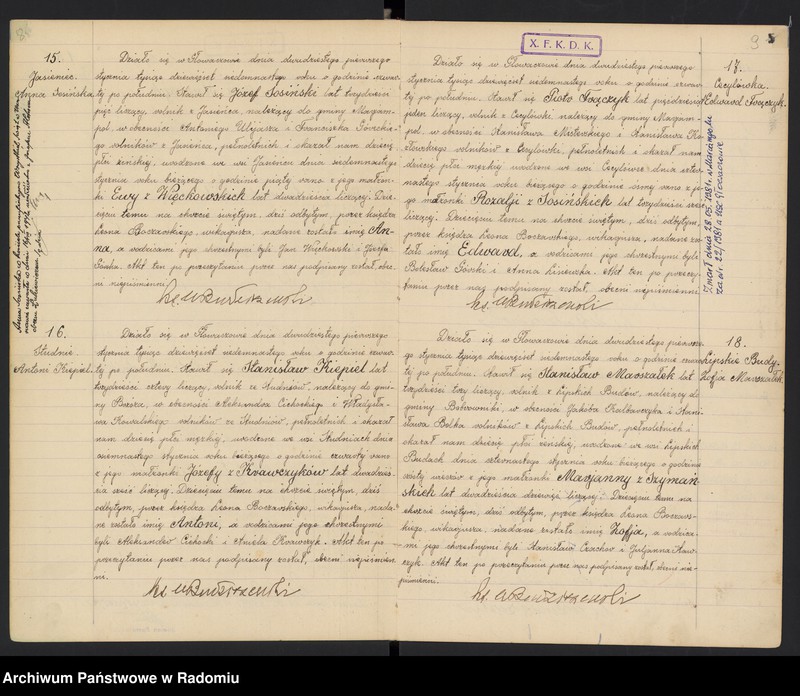 15.
Jasieniec.
Anna Sosińska
Działo się w Głowaczowie dnia dwudziestego pierwszego
stycznia tysiąc dziewięćset siedemnastego roku o godzinie czwar-
tej po południu. Stawił się Józef Sosiński lat trzydzieści
pięć liczący, rolnik z Jasieńca, należący do gminy Marjam-
pol, w obecności Antoniego Ulejasza i Franciszka
rolników z Jasieńca, pełnoletnich i okazał nam dziecię
płci żeńskiej, urodzone we wsi Jasieńcu dnia siedemnastego
stycznia roku bieżącego o godzinie piątej rano z jego małżon-
ki Ewy z Więckowskich lat dwadzieścia liczącej. Dzie-
cięciu temu na chrzcie świętym, dziś odbytym, przez księdza
Leona Boczarskiego, wikarjusza, nadane zostało imię An-
na, a rodzicami jego chrzestnymi byli Jan Więckowski i Józefa
Akt ten po przeczytaniu przez nas podpisany został, obec-
ni niepiśmienni.
16.
Studnie.
Antoni Kiepiel.
Działo się w Głowaczowie dnia dwudziestego pierwszego
stycznia tysiąc dziewięćset siedemnastego roku o godzinie czwar-
tej po południu. Stawił się Stanisław Kiepiel lat
trzydzieści cztery liczący, rolnik ze Studniów, należący do gmi-
ny Brzóza, w obecności Aleksandra Cichockiego i Władysła-
wa Kowalskiego rolników ze Studniów, pełnoletnich i okazał
nam dziecię płci męzkiej, urodzone we wsi Studniach dnia
osiemnastego stycznia roku bieżącego o godzinie czwartej rano
z jego małżonki Józefy z Krawczyków lat dwadzieś-
cia sześć liczącej. Dziecięciu temu na chrzcie świętym, dziś
odbytym, przez księdza Leona Boczarskiego, wikarjusza, nada-
ne zostało imię Antoni, a rodzicami jego chrzestnymi
byli Aleksander Cichocki i Aniela Krawczyk. Akt ten po
przeczytaniu przez nas podpisany został, obecni niepiśmien-
ni.
X. F. K. D. K.
17.
Cecylówka.
Edward Frączyk.
Działo się w Głowaczowie dnia dwudziestego pierwszego
stycznia tysiąc dziewięćset siedemnastego roku o godzinie czwar-
tej po południu. Stawił się Piotr Frączyk lat pięćdziesiąt
jeden liczący, rolnik z Cecylówki, należący do gminy Marjam-
pol, w obecności Stanisława i Stanisława Ko-
złowskiego rolników z Cecylówki, pełnoletnich i okazał nam
dziecię płci męzkiej urodzone we wsi Cecylówce dnia czter-
nastego stycznia roku bieżącego o godzinie ósmej rano z je-
go małżonki Rozalji z Sosińskich lat trzydzieści sześć
liczącej. Dziecięciu temu na chrzcie świętym, dziś odbytym,
przez księdza Leona Boczarskiego, wikarjusza, nadane zo-
stało imię Edward, a rodzicami jego chrzestnymi byli
Bolesław i Anna Akt ten po przeczy-
taniu przez nas podpisany został, obecni niepiśmienni.
Zmarł dnia 28.05.1981 r. w
za nr 22/1981 a 1165 Głowaczów
18.
Lipskie Budy.
Zofja Marszałek.
Działo się w Głowaczowie dnia dwudziestego pierwsze-
go stycznia tysiąc dziewięćset siedemnastego roku o godzinie czwar-
tej po południu. Stawił się Stanisław Marszałek lat
trzydzieści trzy liczący, rolnik z Lipskich Budów, należący do
gminy Bobrowniki, w obecności Jakóba Kalbarczyka i Stani-
sława Bolka rolników z Lipskich Budów, pełnoletnich i
okazał nam dziecię płci żeńskiej, urodzone we wsi Lipskich
Budach dnia czternastego stycznia roku bieżącego o godzinie
szóstej wieczór z jego małżonki Marjanny z Szymań-
skich lat dwadzieścia dziewięć liczącej. Dziecięciu temu na
chrzcie świętym, dziś odbytym, przez księdza Leona Boczars-
kiego, wikarjusza, nadane zostało imię Zofja, a rodzica-
mi jego chrzestnymi byli Stanisław Czachor i Juljanna Kaw-
czyk. Akt ten po przeczytaniu przez nas podpisany został, obecni nie-
piśmienni.
Archiwum Państwowe w Radomiu